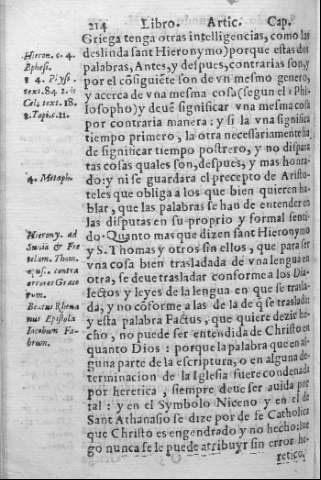 214 Libro. Artic. Cap.
Griega tenga otras intelligencias, como las
deslinda sant Hieronymo) porque estas dos
palabras, Antes, y despues, contrarias son, y
por el cõsiguiẽte son de vn mesmo genero,
y acerca de vna mesma cosa (segun el Phi-
losopho) y deue significar vna mesma cosa
por contraria manera: y si la vna significa
tiempo primero, la otra necessariamente ha
de significar tiempo postrero, y no disparatas
cosas quales son, despues, y mas honra-
do: y ni se guardara el precepto de Aristo-
teles que obliga a los que bien quieren ha-
blar, que las palabras se han de entender en
las disputas en su proprio y formal senti-
do. Quanto mas que dizen sant Hieronymo
y S. Thomas y otros sin ellos, que para ser
vna cosa bien trasladada de vna lengua en
otra, se deue trasladar conforme a los Dia-
lectos y leyes de la lengua en que se trasla-
da, y no cõforme a las de la de q̃ se traslada:
y esta palabra Factus, que quiere dezir he-
cho, no puede ser entendida de Christo en
quanto Dios: porque la palabra que en al-
guna parte de la escriptura, o en alguna de-
terminacion de la Iglesia fuere condenada
por heretica, siempre deue ser auida por
tal: y en el Symbolo Niceno y en el de
Sant Athanasio se dize por de fe Catholica
que Christo es engendrado y no hecho: lue
go nunca se le puede atribuyr sin error he-
retico,
Hieron. c. 4.
Ephesi.
4. Physi.
text. 84.
Cel. text. 18.
Topi. c. 11.
4. Metaph.
Hierony. ad
Suniã & Fre
telam. Thom.
opus. contra
errores Græco
rum.
Beatus Rhena
nus Epistola
Iacobum Fa-
brum.